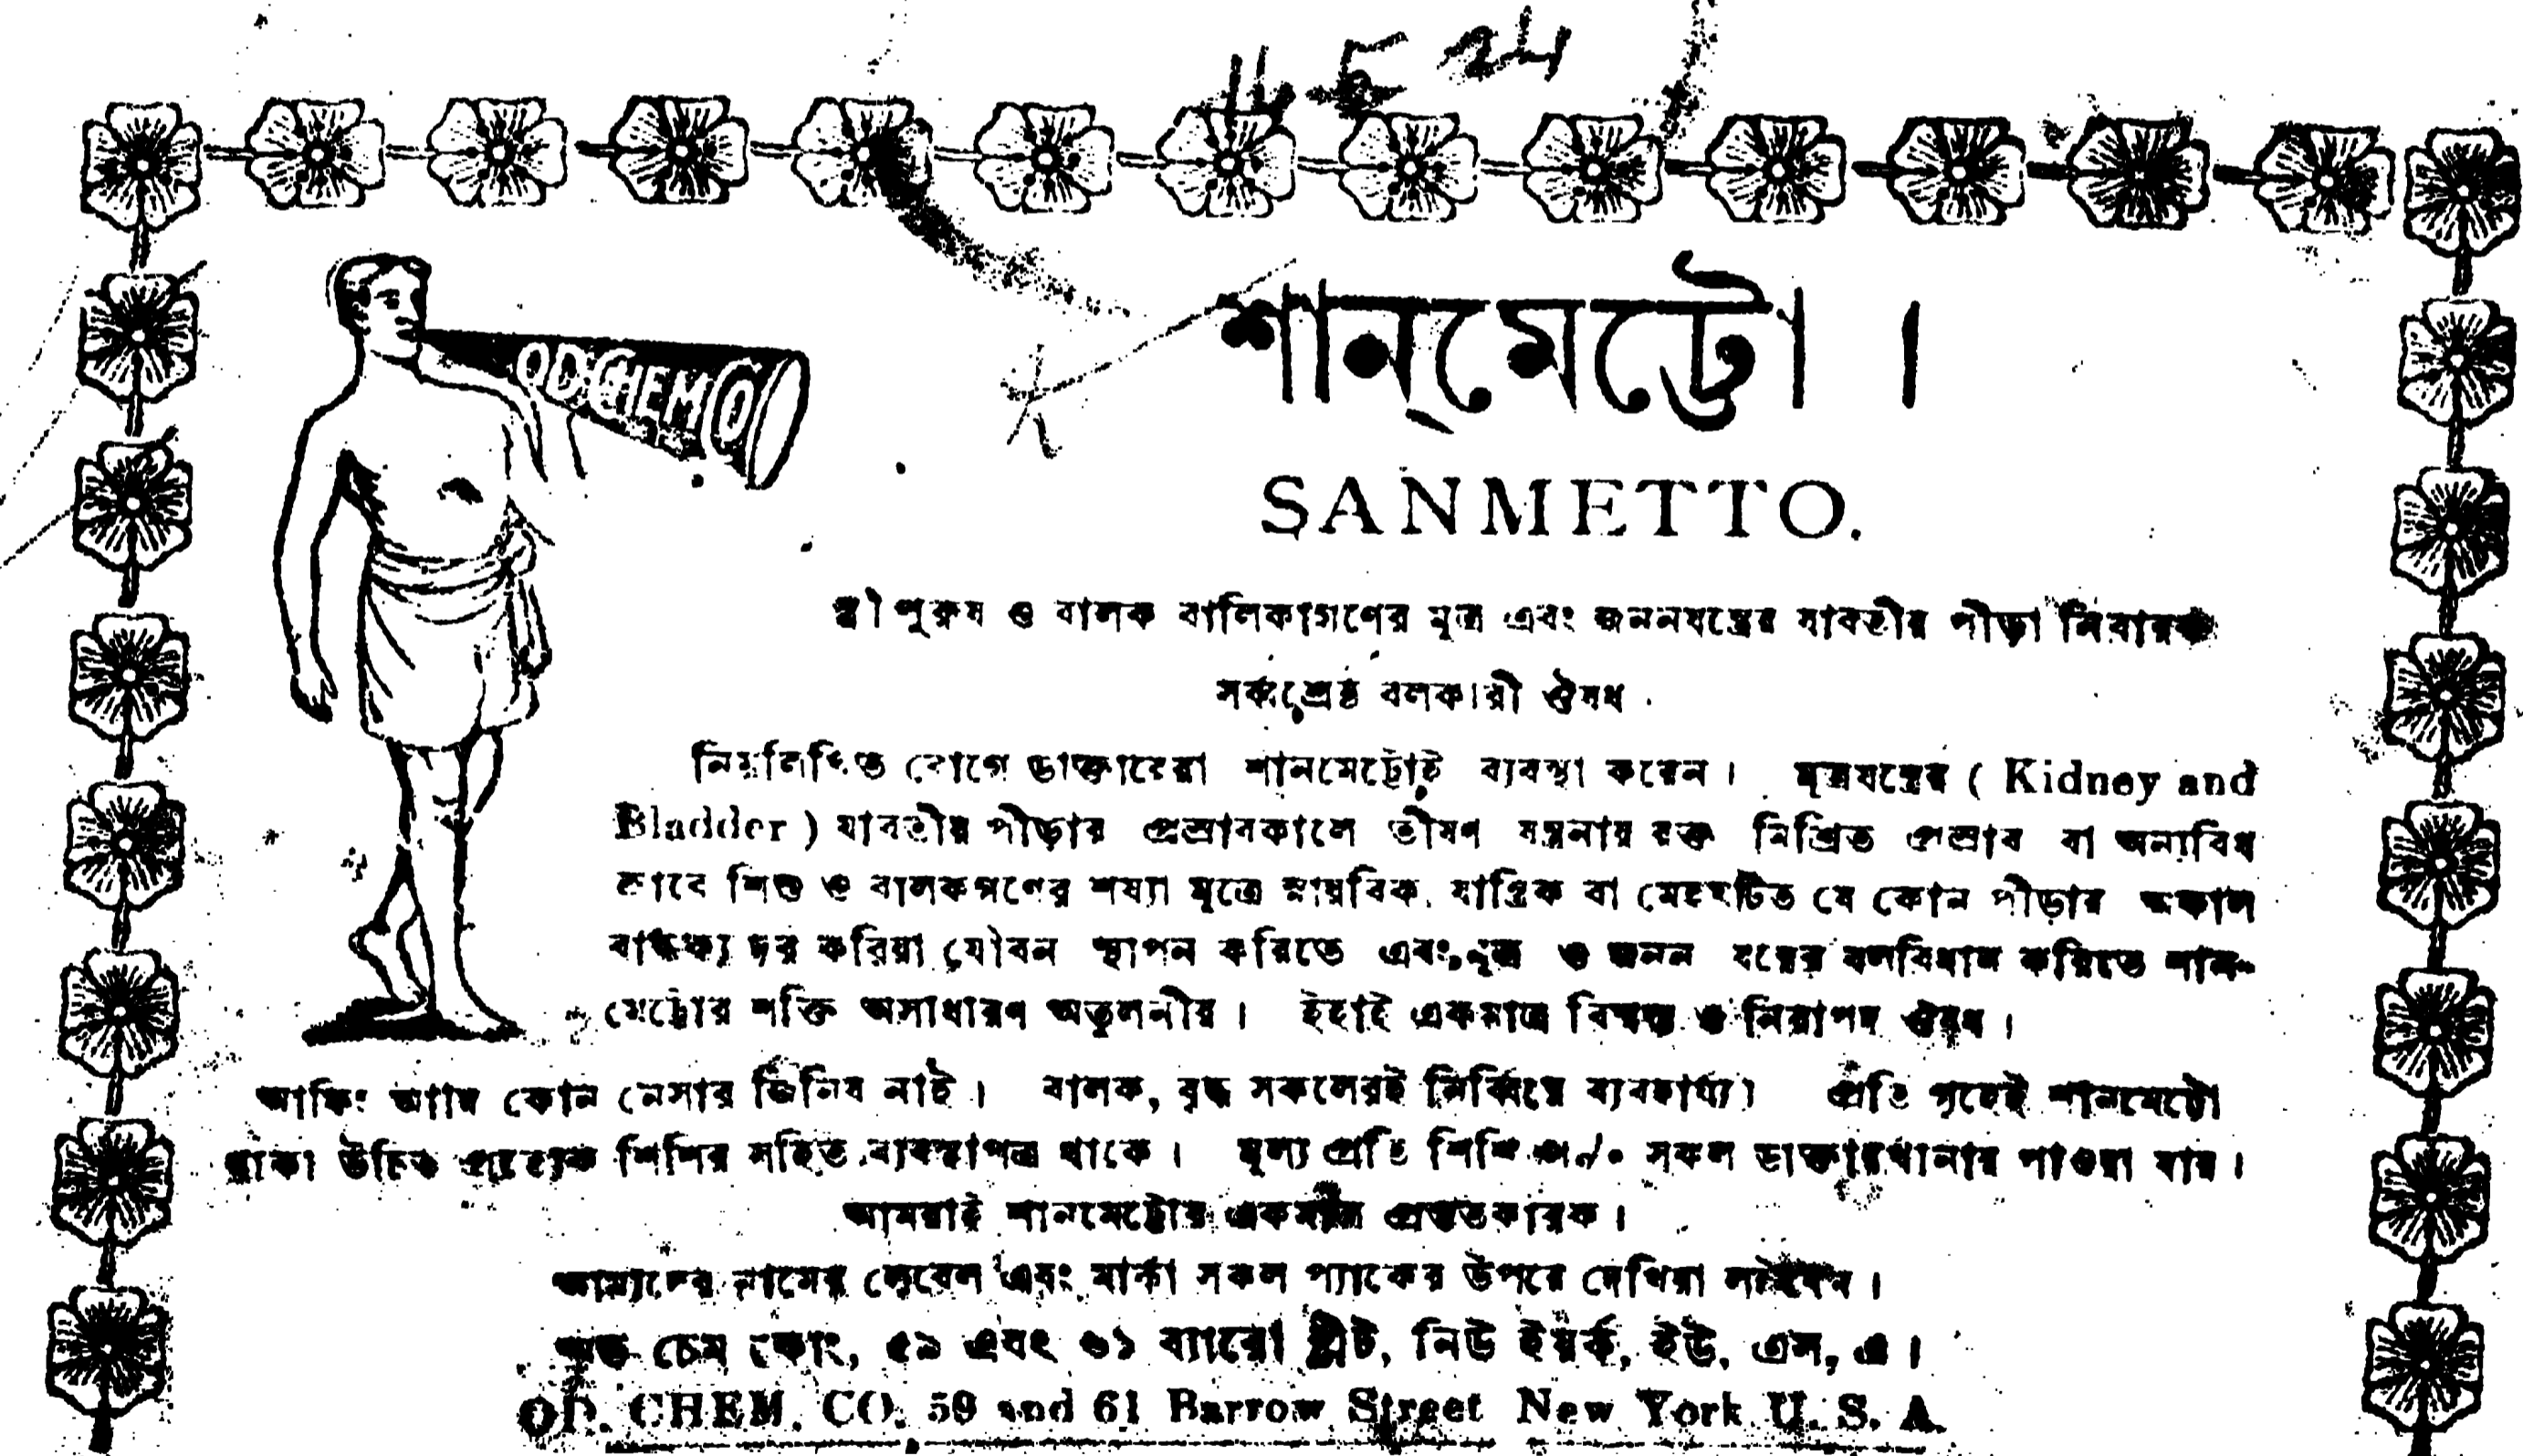 11 5 24
OD CHEM CO
শান্‌মেট্টো ।
SANMETTO.
স্ত্রী পুরুষ ও বালক বালিকাগণের মূত্র এবং জননযন্ত্রের যাবতীয় পীড়া নিবারক
সর্ব্বশ্রেষ্ঠ বলকারী ঔষধ
নিম্নলিখিত রোগে ডাক্তারেরা শানমেট্টোই ব্যবস্থা করেন । মূত্রযন্ত্রের ( Kidney and
Bladder ) যাবতীয় পীড়ায় প্রস্রাবকালে ভীষণ যন্ত্রনায় রক্ত মিশ্রিত প্রস্রাব বা অন্যবিধ
শিশু ও বালকগণের শয্যা মূত্রে স্নায়বিক, যান্ত্রিক বা মেহঘটিত যে কোন পীড়ায় অকাল
বার্দ্ধক্য দূর করিয়া যৌবন স্থাপন করিতে এবং মূত্র ও জনন যন্ত্রের বলবিধান করিতে শান-
মেট্টোর শক্তি অসাধারণ অতুলনীয় । ইহাই একমাত্র বিশ্বস্ত ও নিরাপদ ঔষধ ।
আফিং আদি কোন নেসার জিনিষ নাই । বালক, বৃদ্ধ সকলেরই নির্ব্বিঘ্নে ব্যবহার্য্য । প্রতি গৃহেই শানমেট্টো
থাকা উচিত প্রত্যেক শিশির সহিত ব্যবস্থাপত্র থাকে । মূল্য প্রতি শিশি সকল ডাক্তারখানায় পাওয়া যায় ।
আমরাই শানমেট্টোর একমাত্র প্রস্তুতকারক ।
আমাদের নামের লেবেল এবং মার্কা সকল প্যাকের উপরে দেখিয়া লইবেন ।
অড চেম কোং, ৫৯ এবং ৬১ ব্যারো ষ্ট্রীট, নিউ ইয়র্ক, ইউ, এস, এ ।
OD. CHEM. CO. 59 and 61 Barrow Street New York U. S. A.